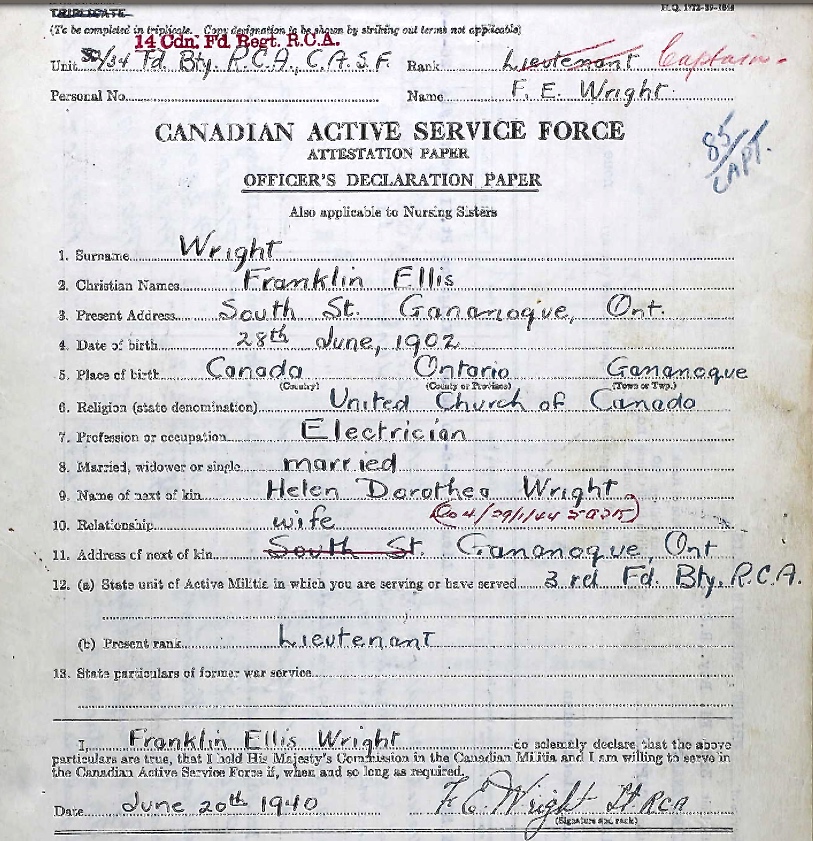 TRIPLICATE
H.Q. 1772-39-
(To be completed in triplicate. Copy designation to be shown by striking out terms not applicable)
14 Cdn. Fd. Regt. R.C.A.
Unit /34 Fd. Bty. R.C.A., C.A.S.F. Rank Lieutenant Captain
Personal No. Name F. E. Wright
CANADIAN ACTIVE SERVICE FORCE
ATTESTATION PAPER
85/CAPT.
OFFICER'S DECLARATION PAPER
Also applicable to Nursing Sisters
1. Surname Wright
2. Christian Names Franklin Ellis
3. Present Address South St. Gananoque, Ont.
4. Date of birth 28th June, 1902
5. Place of birth Canada Ontario Gananoque
(Country) (County or Province) (Town or Twp.)
6. Religion (state denomination) United Church of Canada
7. Profession or occupation Electrician
8. Married, widower or single married
9. Name of next of kin Helen Dorothea Wright
10. Relationship wife
11. Address of next of kin South St. Gananoque, Ont
12. (a) State unit of Active Militia in which you are serving or have served 3rd Fd. Bty. R.C.A.
(b) Present rank Lieutenant
13. State particulars of former war service
I, Franklin Ellis Wright do solemnly declare that the above
particulars are true, that I hold His Majesty's Commission in the Canadian Militia and I am willing to serve in
the Canadian Active Service Force if, when and so long as required.
Date June 20th 1940 F. E. Wright Lt. RCA
(Signature and rank)